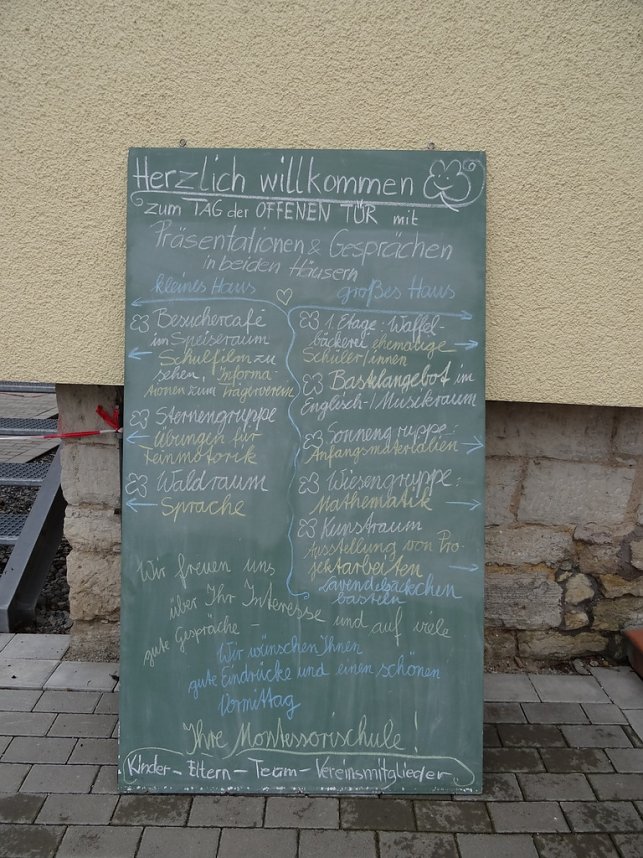 Herzlich willkommen
zum TAG der OFFENEN TÜR mit
Präsentationen & Gesprächen
in beiden Häusern
kleines Haus
Besuchercafé
im Speiseraum
Schulfilm zu
sehen, Informa-
tionen zum Trägerverein
Sternengruppe
Übungen für
Feinmotorik
Waldraum
Sprache
großes Haus
1. Etage: Waffel-
bäckerei ehemalige
Schüler/innen
Bastelangebot im
Englisch-/Musikraum
Sonnengruppe:
Anfangsmaterialien
Wiesengruppe:
Mathematik
Kunstraum
Ausstellung von Pro-
jektarbeiten
Lavendelsäckchen
basteln
Wir freuen uns
über Ihr Interesse und auf viele
gute Gespräche -
Wir wünschen Ihnen
gute Eindrücke und einen schönen
Vormittag
Ihre Montessorischule!
Kinder - Eltern - Team - Vereinsmitglieder